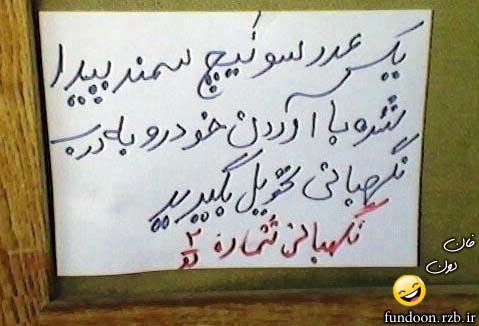 یک عدد سوئیچ سمند پیدا
شده با آوردن خودرو به درب
نگهبانی تحویل بگیرید
نگهبانی شماره ۲
فان
دون
fundoon.rzb.ir